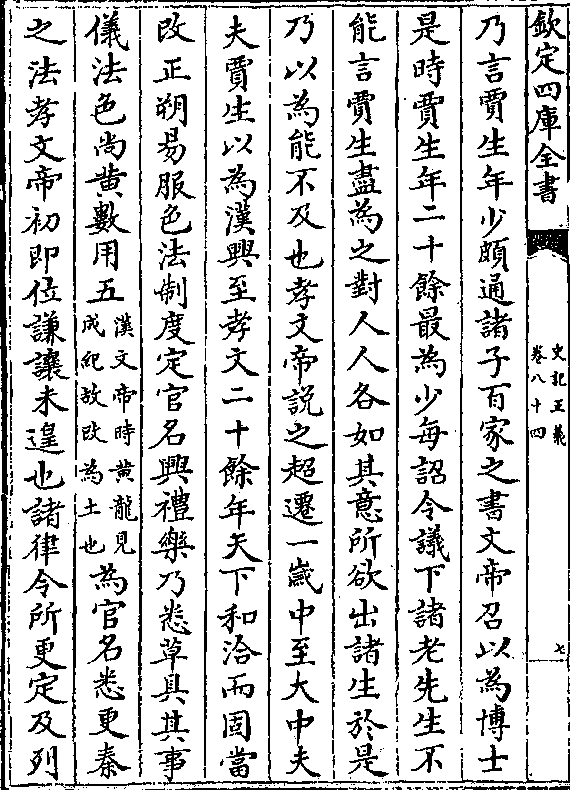 欽定四庫全書
史記正義
卷八十四
七
乃言賈生年少頗通諸子百家之書文帝召以為博士
是時賈生年二十餘最為少每詔令議下諸老先生不
能言賈生盡為之對人人各如其意所欲出諸生於是
乃以為能不及也孝文帝說之超遷一歲中至大中夫
夫賈生以為漢興至孝文二十餘年天下和洽而固當
改正朔易服色法制度定官名興禮樂乃悉草具其事
儀法色尚黄數用五漢文帝時黄龍見成紀故改為土也為官名悉更秦
之法孝文帝初即位謙讓未遑也諸律令所更定及列